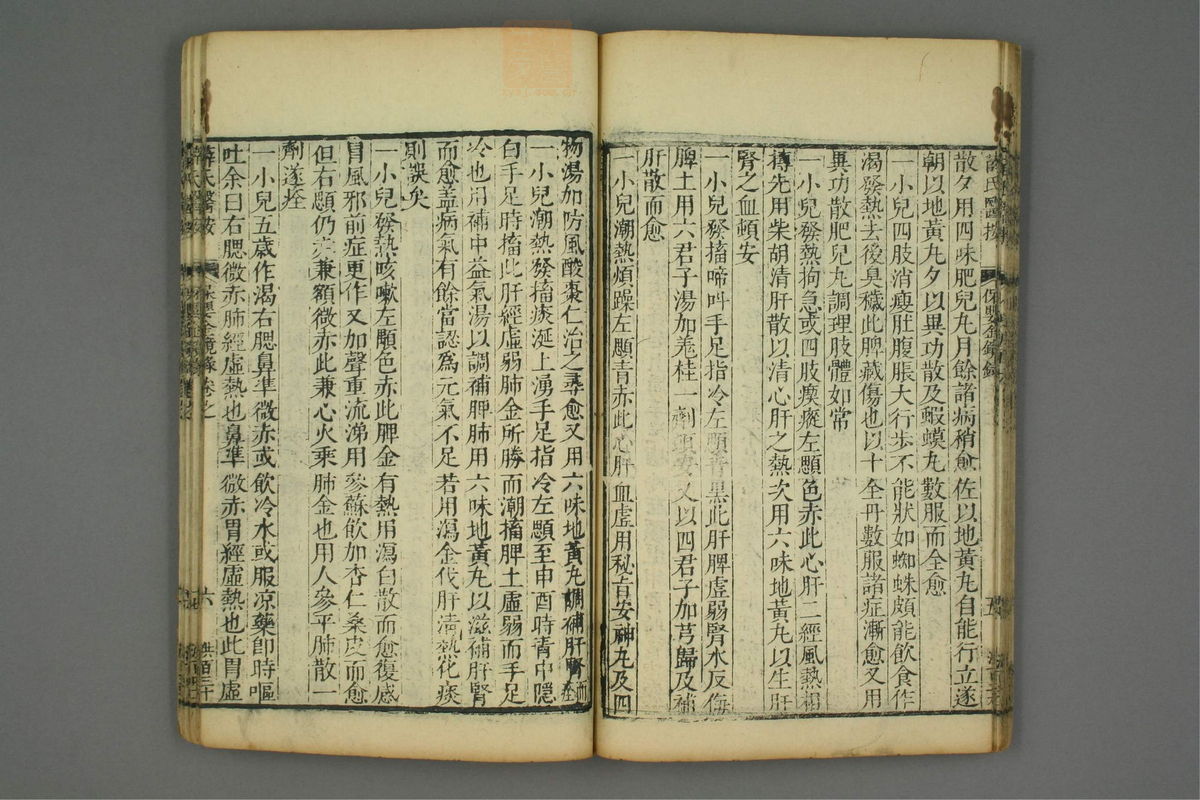 散夕用四味肥兒丸月餘諸病稍愈佐以地黃丸自能行立遂
朝以地黃丸夕以異功散及蝦蟆丸數服而全愈
一小兒四肢消瘦肚腹脹大行步不能狀如蜘蛛頗能飲食作
渴發熱去後臭穢此脾藏傷也以十全丹數服諸症漸愈又用
異功散肥兒丸調理肢體如常
一小兒發熱拘急或四肢瘈瘲左顋色赤此心肝二經風熱相
摶先用柴胡清肝散以清心肝之熱次用六味地黃丸以生肝
腎之血頓安
一小兒發搐啼叫手足指冷左顋青黑此肝脾虛弱腎水反侮
脾土用六君子湯加羗桂一劑頓安又以四君子加芎歸及補
肝散而愈
一小兒潮熱煩躁左顋青赤此心肝血虛用秘旨安神丸及四
物湯加防風酸棗仁治之尋愈又用六味地黃丸調補肝腎而痊
一小兒潮熱發搐痰涎上湧手足指冷左顋至申酉時青中隱
白手足時搐此肝經虛弱肺金所勝而潮搐脾土虛弱而手足
冷也用補中益氣湯以調補脾肺用六味地黃丸以滋補肝腎
而愈蓋病氣有餘當認為元氣不足若用瀉金伐肝清熱化痰
則誤矣
一小兒發熱咳嗽左顋色赤此脾金有熱用瀉白散而愈復感
冒風邪前症更作又加聲重流涕用參蘇飲加杏仁桑皮而愈
但右顋仍赤兼額微赤此兼心火乘肺金也用人參平肺散一
劑遂痊
一小兒五歲作渴右腮鼻準微赤或飲冷水或服凉藥即時嘔
吐余曰右腮微赤肺經虛熱也鼻準微赤胃經虛熱也此胃虛
薛氏醫按
保嬰金鏡錄卷之
六